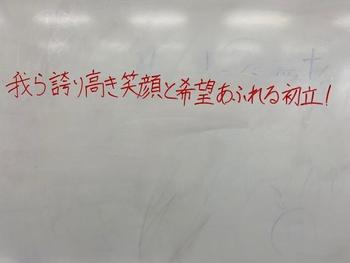 我ら誇り高き笑顔と希望あふれる初立!